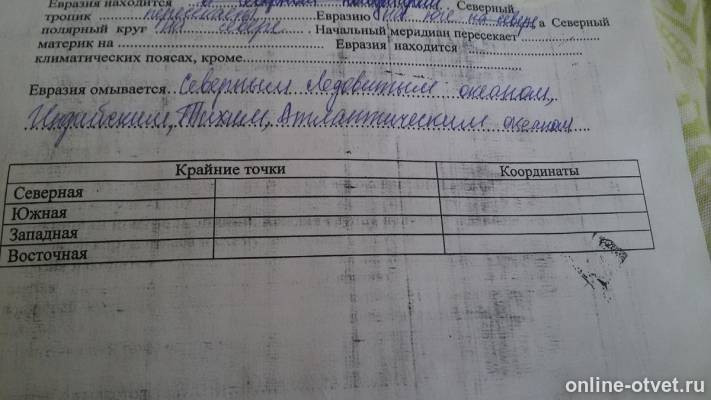 Евразия находится в Северном полушарии. Северный
тропик пересекает Евразию на юге на севере, а Северный
полярный круг на севере. Начальный меридиан пересекает
материк на Евразия находится
климатических поясах, кроме
Евразия омывается Северным Ледовитым океаном,
Индийским, Тихим, Атлантическим океаном
Крайние точки Координаты
Северная
Южная
Западная
Восточная
online-otvet.ru